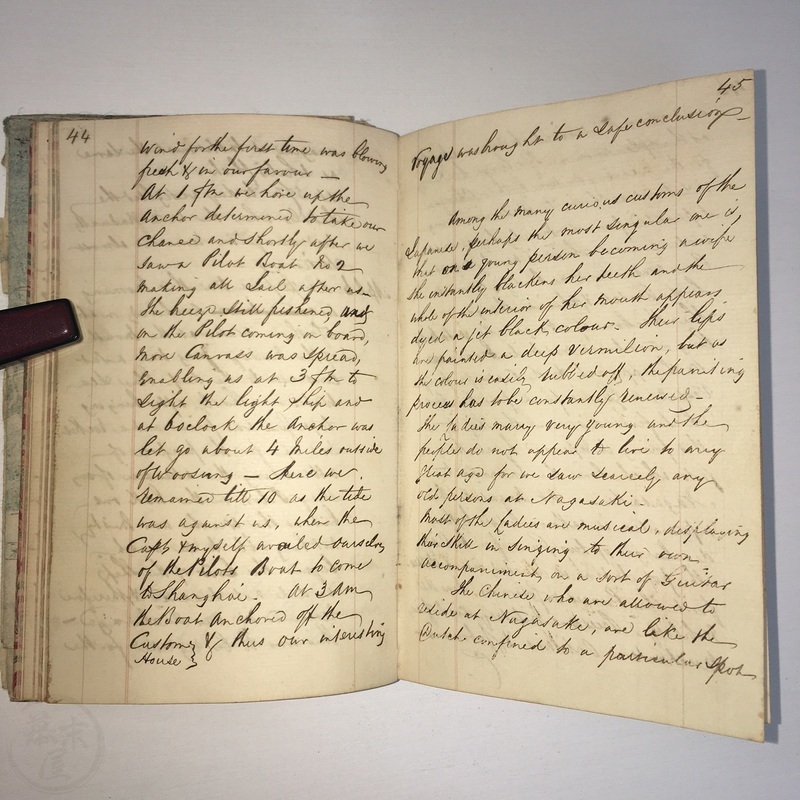 44
Wind for the first time was blowing
fresh & in our favour —
At 1 pm we hove up the
Anchor determined to take our
Chance and shortly after we
saw a Pilot Boat No 2
making all Sail after us —
The breeze still freshened, and
on the Pilot coming on board,
more Canvass was spread,
enabling us at 3 pm to
Sight the light Ship and
at 6 oclock the Anchor was
let go about 4 Miles outside
of Woosung — Here we
remained till 10 as the tide
was against us, when the
Capt & myself availed ourselves
of the Pilots Boat to come
to Shanghai. At 3 AM
the Boat Anchored off the
Customs & thus our interesting
House
45
Voyage was brought to a safe conclusion —
Among the many curious customs of the
Japanese, perhaps the most singular one is
that on a young person becoming a wife
she instantly blackens her teeth and the
whole of the interior of her mouth appears
dyed a jet black colour. Their lips
are painted a deep Vermilion, but as
the colour is easily rubbed off, the painting
process has to be constantly renewed —
The ladies marry very young and the
people do not appear to live to any
great age for we saw scarcely any
old persons at Nagasaki.
Most of the Ladies are musical, displaying
their skill in singing to their own
accompaniment, on a sort of Guitar
The Chinese who are allowed to
reside at Nagasaki, are like the
Dutch confined to a particular spot
幕末屋